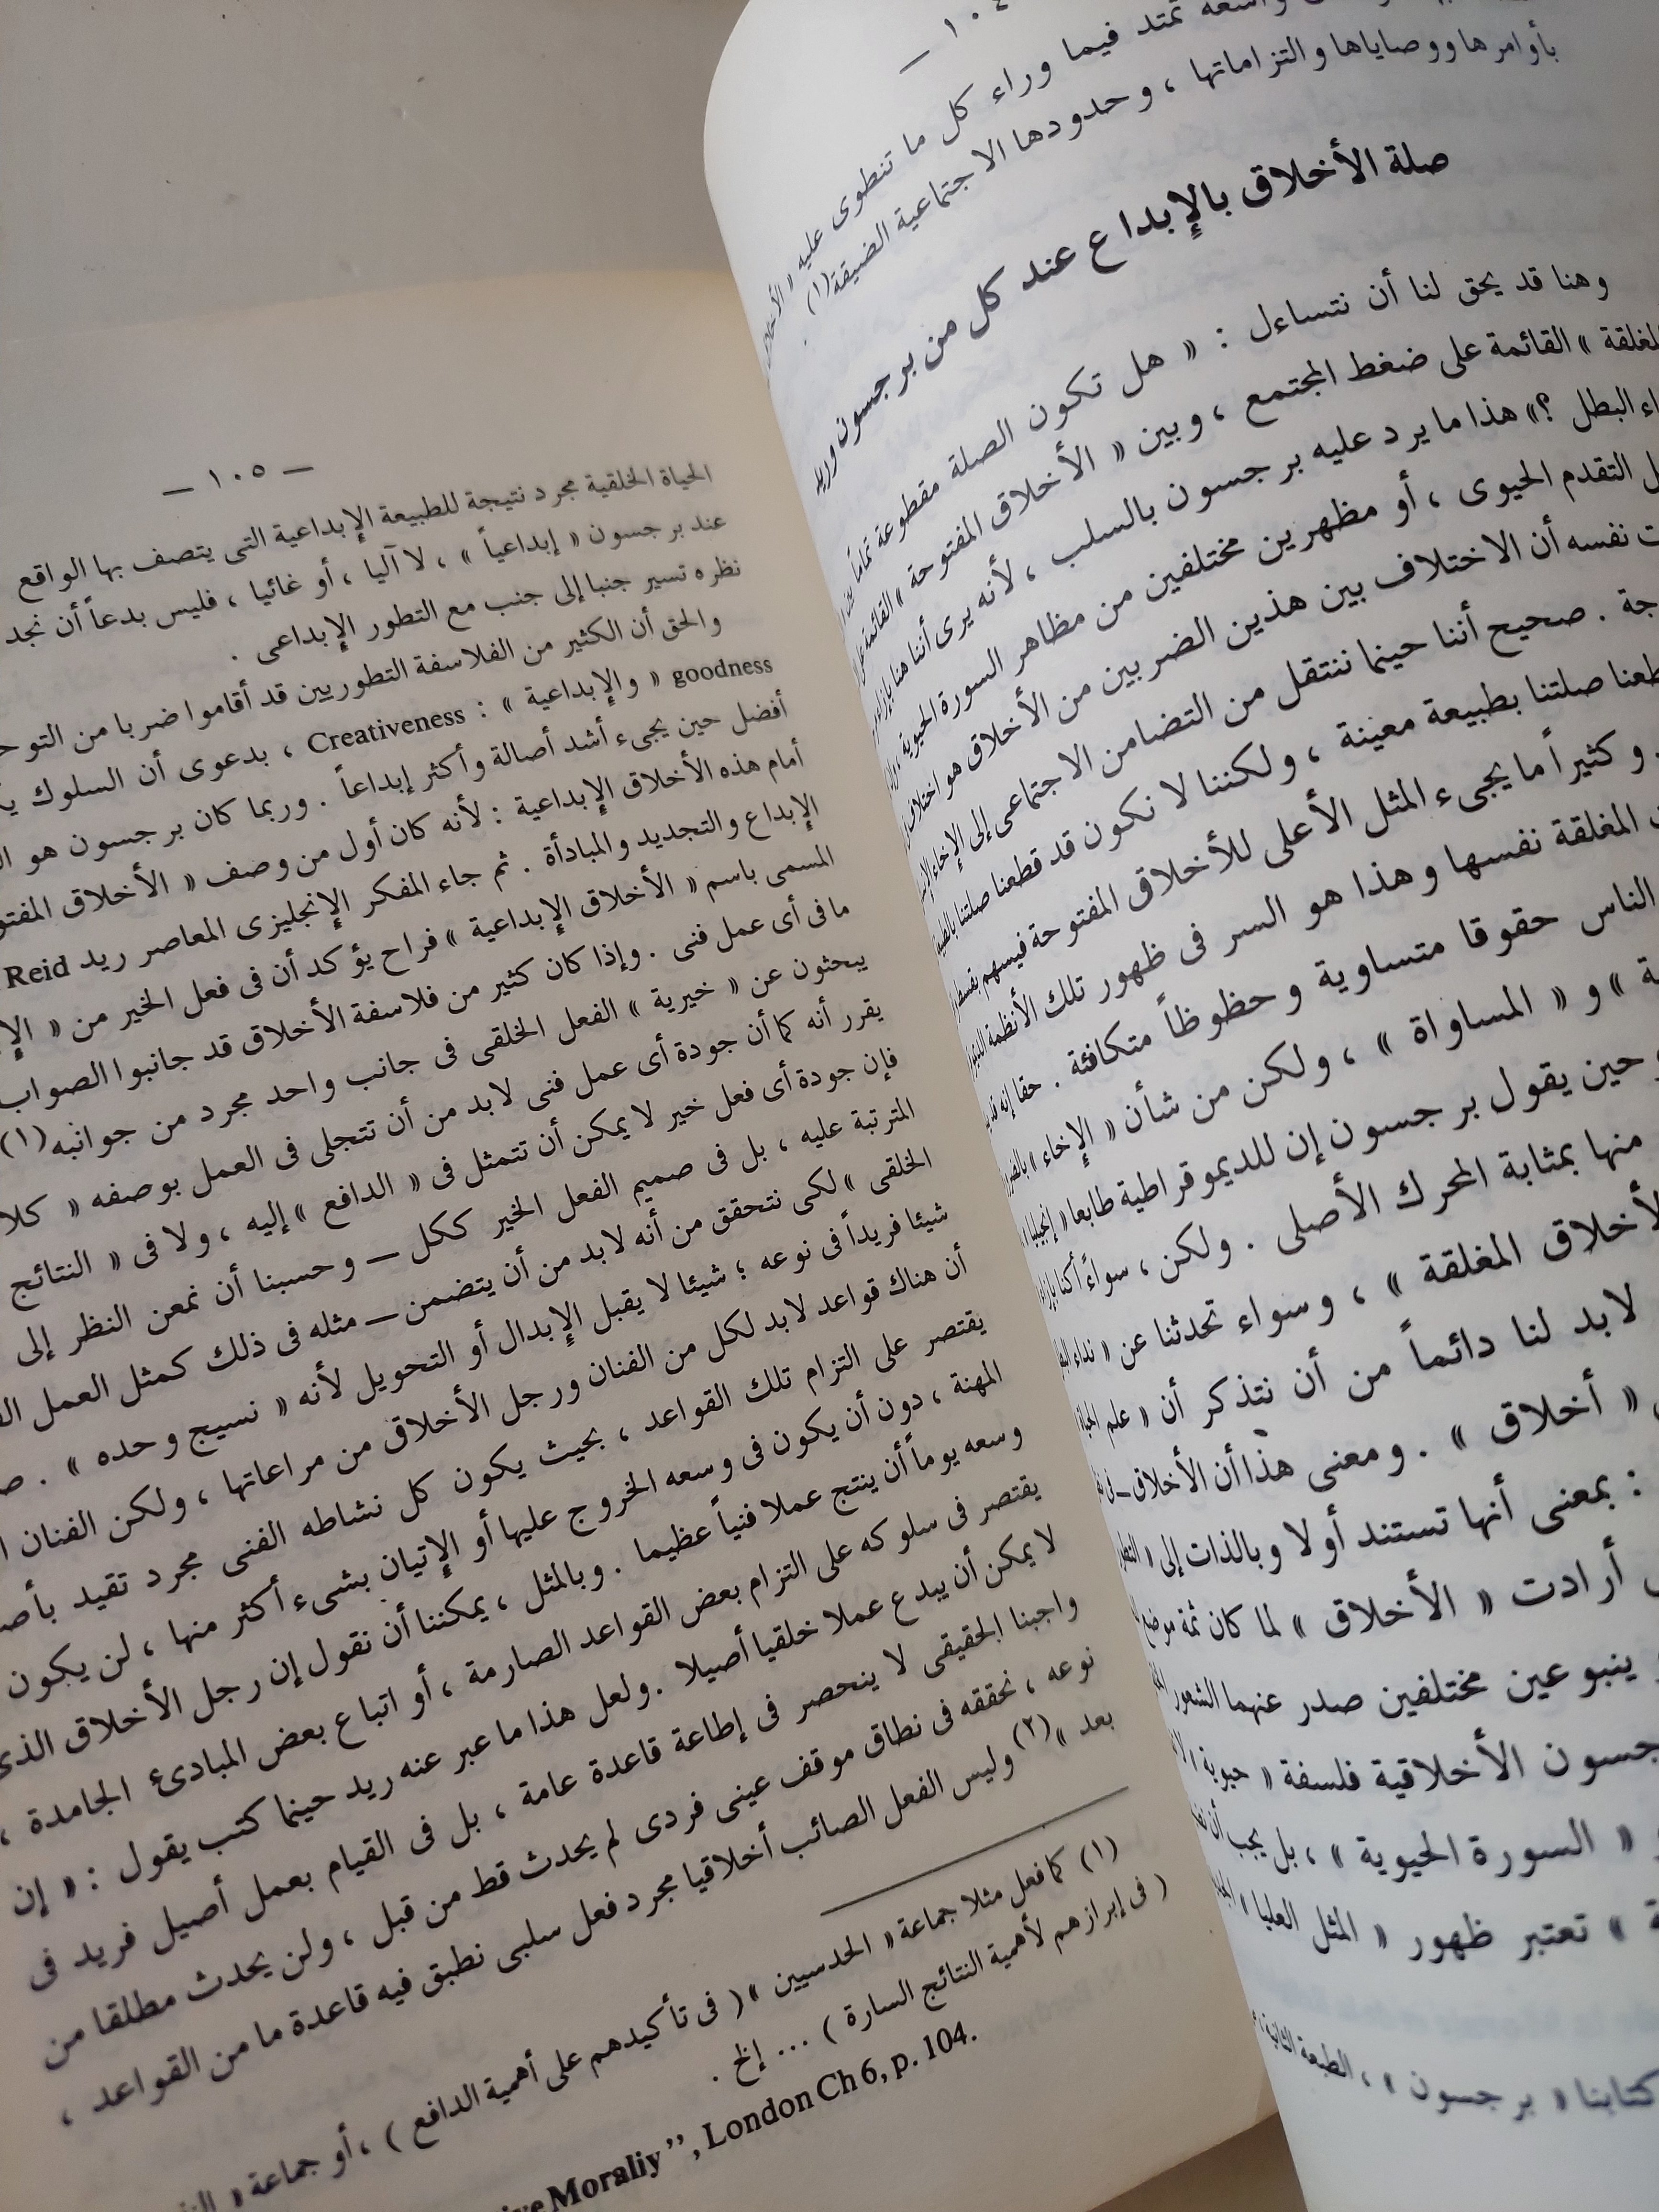 واسعة تمتد فيما وراء كل ما تنطوى عليه « الأخلاق
بأوامرها ووصاياها والتزاماتها ، وحدودها الاجتماعية الضيقة (١) .
صلة الأخلاق بالإبداع عند كل من برجسون
وهنا قد يحق لنا أن نتساءل : « هل تكون الصلة مقطوعة تماماً
المغلقة » القائمة على ضغط المجتمع ، وبين « الأخلاق المفتوحة » القائمة على
البطل ؟ » هذا ما يرد عليه برجسون بالسلب ، لأنه يرى أننا هنا بإزاء
التقدم الحيوى ، أو مظهرين مختلفين من مظاهر السورة الحيوية
نفسه أن الاختلاف بين هذين الضربين من الأخلاق هو اختلاف
صحيح أننا حينما ننتقل من التضامن الاجتماعى إلى الإخاء
صلتنا بطبيعة معينة ، ولكننا لا نكون قد قطعنا صلتنا
وكثيراً ما يجىء المثل الأعلى للأخلاق المفتوحة فيسهم بقسط
المغلقة نفسها وهذا هو السر فى ظهور تلك الأنظمة
الناس حقوقا متساوية وحظوظاً متكافئة . حقا إنه
» و « المساواة » ، ولكن من شأن « الإخاء »
حين يقول برجسون إن للديموقراطية طابعا « إنجيليا
منها بمثابة المحرك الأصلى . ولكن ، سواء أكنا بإزاء
المغلقة » ، وسواء تحدثنا عن « نداء
لابد لنا دائماً من أن نتذكر أن « علم الحياة
« أخلاق » . ومعنى هذا أن الأخلاق ــ فى
: بمعنى أنها تستند أولا وبالذات إلى «
أرادت « الأخلاق » لما كان ثمة موضع
ينبوعين مختلفين صدر عنهما الشعور
الأخلاقية فلسفة « حيوية
« السورة الحيوية » ، بل يجب أن
» تعتبر ظهور « المثل العليا »
كتابنا « برجسون » ، الطبعة الثانية
ــ ١٠٥ ــ
الحياة الخلقية مجرد نتيجة للطبيعة الإبداعية التى يتصف بها الواقع
عند برجسون « إبداعياً » ، لا آليا ، أو غائيا ، فليس بدعاً أن نجد
نظره تسير جنبا إلى جنب مع التطور الإبداعى .
والحق أن الكثير من الفلاسفة التطوريين قد أقاموا ضربا من
goodness « والإبداعية » : Creativeness ، بدعوى أن السلوك
أفضل حين يجىء أشد أصالة وأكثر إبداعاً . وربما كان برجسون هو
أمام هذه الأخلاق الإبداعية : لأنه كان أول من وصف « الأخلاق
الإبداع والتجديد والمبادأة . ثم جاء المفكر الإنجليزى المعاصر ريد Reid
المسمى باسم « الأخلاق الإبداعية » فراح يؤكد أن فى فعل الخير من «
ما فى أى عمل فنى . وإذا كان كثير من فلاسفة الأخلاق قد جانبوا الصواب
يبحثون عن « خيرية » الفعل الخلقى فى جانب واحد مجرد من جوانبه (١)
يقرر أنه كما أن جودة أى عمل فنى لابد من أن تتجلى فى العمل بوصفه «
فإن جودة أى فعل خير لا يمكن أن تتمثل فى « الدافع » إليه ، ولا فى « النتائج
المترتبة عليه ، بل فى صميم الفعل الخير ككل ــ وحسبنا أن نمعن النظر إلى
الخلقى » لكى نتحقق من أنه لابد من أن يتضمن ــ مثله فى ذلك كمثل العمل
شيئا فريداً فى نوعه ؛ شيئا لا يقبل الإبدال أو التحويل لأنه « نسيج وحده » .
أن هناك قواعد لابد لكل من الفنان ورجل الأخلاق من مراعاتها ، ولكن الفنان
يقتصر على التزام تلك القواعد ، بحيث يكون كل نشاطه الفنى مجرد تقيد
المهنة ، دون أن يكون فى وسعه الخروج عليها أو الإتيان بشىء أكثر منها ، لن يكون
وسعه يوماً أن ينتج عملا فنياً عظيما . وبالمثل ، يمكننا أن نقول إن رجل الأخلاق الذى
يقتصر فى سلوكه على التزام بعض القواعد الصارمة ، أو اتباع بعض المبادئ الجامدة ،
لا يمكن أن يبدع عملا خلقيا أصيلا . ولعل هذا ما عبر عنه ريد حينما كتب يقول : « إن
واجبنا الحقيقى لا ينحصر فى إطاعة قاعدة عامة ، بل فى القيام بعمل أصيل فريد فى
نوعه ، نحققه فى نطاق موقف عينى فردى لم يحدث قط من قبل ، ولن يحدث مطلقا من
بعد » (٢) وليس الفعل الصائب أخلاقيا مجرد فعل سلبى نطبق فيه قاعدة ما من القواعد ،
(١) كما فعل مثلا جماعة « الحدسيين » ( فى تأكيدهم على أهمية الدافع ) ، أو جماعة «
( فى إبرازهم لأهمية النتائج السارة ) ... إلخ .
Moraliy”, London Ch 6, p. 104.